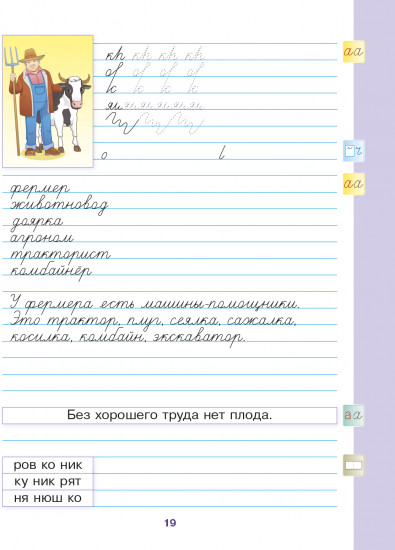 кф кф кф кф
о l
фермер
животновод
доярка
агроном
тракторист
комбайнёр
У фермера есть машины-помощники.
Это трактор, плуг, сеялка, сажалка,
косилка, комбайн, экскаватор.
Без хорошего труда нет плода.
ров ко ник
ку ник рят
ня нюш ко
19
аа
ч
аа
аа